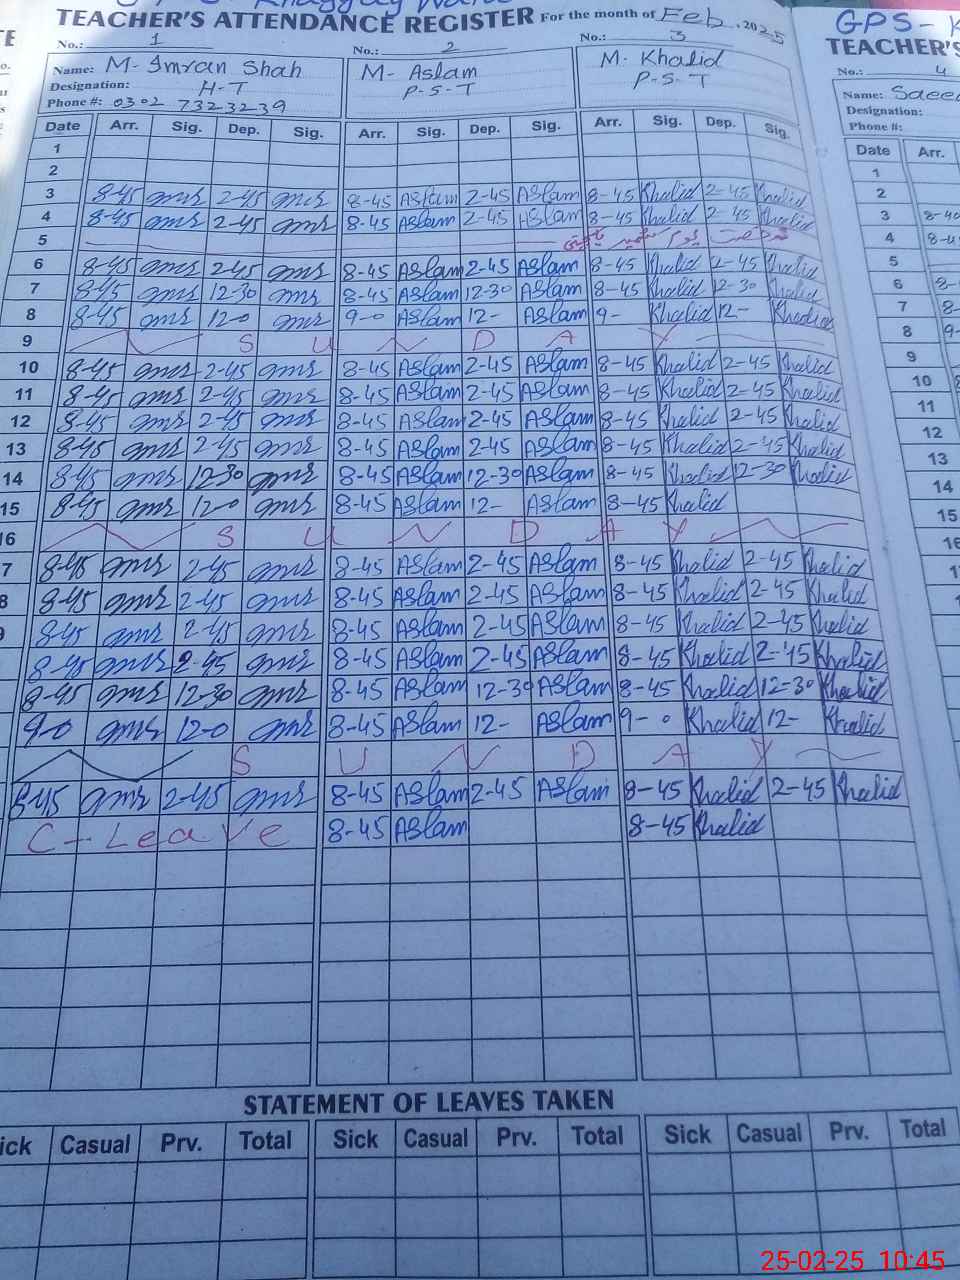 TEACHER'S ATTENDANCE REGISTER For the month of Feb, 2025
No.: 1 No.: 2 No.: 3
Name: M- Imran Shah M- Aslam M. Khalid
Designation: H-T P-S-T P-S-T
Phone #: 0302 7323239
Date Arr. Sig. Dep. Sig. Arr. Sig. Dep. Sig. Arr. Sig. Dep. Sig.
1
2
3 8-45 2-45 8-45 Aslam 2-45 Aslam 8-45 Khalid 2-45 Khalid
4 8-45 2-45 8-45 Aslam 2-45 Aslam 8-45 Khalid 2-45 Khalid
5
6 8-45 2-45 8-45 Aslam 2-45 Aslam 8-45 Khalid 2-45 Khalid
7 8-45 12-30 8-45 Aslam 12-30 Aslam 8-45 Khalid 2-30 Khalid
8 8-45 12-0 9-0 Aslam 12- Aslam 9- Khalid 12- Khalid
9 SUNDAY
10 8-45 2-45 8-45 Aslam 2-45 Aslam 8-45 Khalid 2-45 Khalid
11 8-45 2-45 8-45 Aslam 2-45 Aslam 8-45 Khalid 2-45 Khalid
12 8-45 2-45 8-45 Aslam 2-45 Aslam 8-45 Khalid 2-45 Khalid
13 8-45 2-45 8-45 Aslam 2-45 Aslam 8-45 Khalid 2-45 Khalid
14 8-45 12-30 8-45 Aslam 12-30 Aslam 8-45 Khalid 12-30 Khalid
15 8-45 12-0 8-45 Aslam 12- Aslam 8-45 Khalid
16 SUNDAY
7 8-45 2-45 8-45 Aslam 2-45 Aslam 8-45 Khalid 2-45 Khalid
8 8-45 2-45 8-45 Aslam 2-45 Aslam 8-45 Khalid 2-45 Khalid
9 8-45 2-45 8-45 Aslam 2-45 Aslam 8-45 Khalid 2-45 Khalid
8-45 2-45 8-45 Aslam 2-45 Aslam 8-45 Khalid 2-45 Khalid
8-45 12-30 8-45 Aslam 12-30 Aslam 8-45 Khalid 12-30 Khalid
9-0 12-0 8-45 Aslam 12- Aslam 9-0 Khalid 12- Khalid
SUNDAY
8-45 2-45 8-45 Aslam 2-45 Aslam 8-45 Khalid 2-45 Khalid
C-Leave 8-45 Aslam 8-45 Khalid
STATEMENT OF LEAVES TAKEN
ick Casual Prv. Total Sick Casual Prv. Total Sick Casual Prv. Total
GPS- K
TEACHER'S
No.: 4
Name: Saee
Designation:
Phone #:
Date Arr.
1
2
3 8-40
4 8-4
5
6 8-
7 8-
8 9-
9
10 8
11
12
13
14
15
16
1
25-02-25 10:45